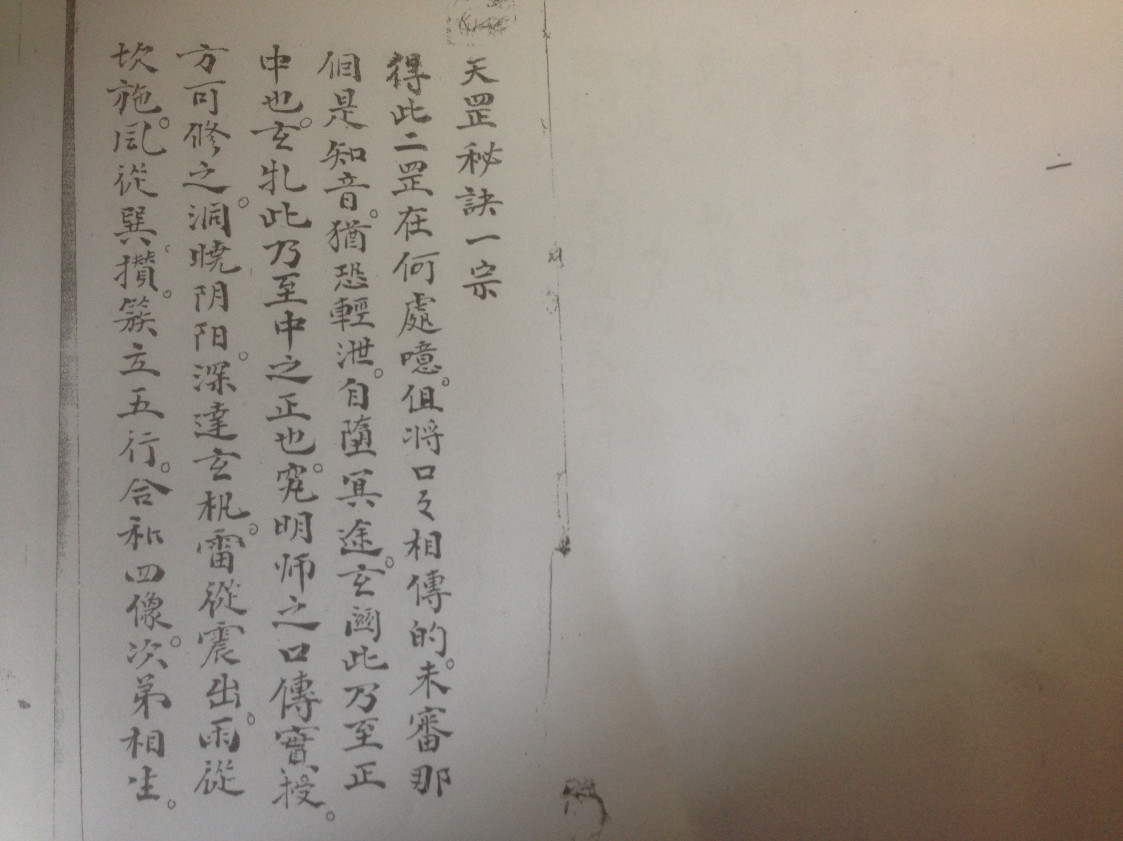 天罡秘訣一宗
得此二罡在何處噫。但將口々相傳的。未審那
佪是知音。猶恐輕泄。自墮冥途。玄関此乃至正
中也。玄牝此乃至中之正也。究明师之口傳實授。
方可修之。洞曉阴阳。深達玄机。雷從震出。雨從
坎施。風從巽攢。簇立五行。合和四像。次弟相生。
一